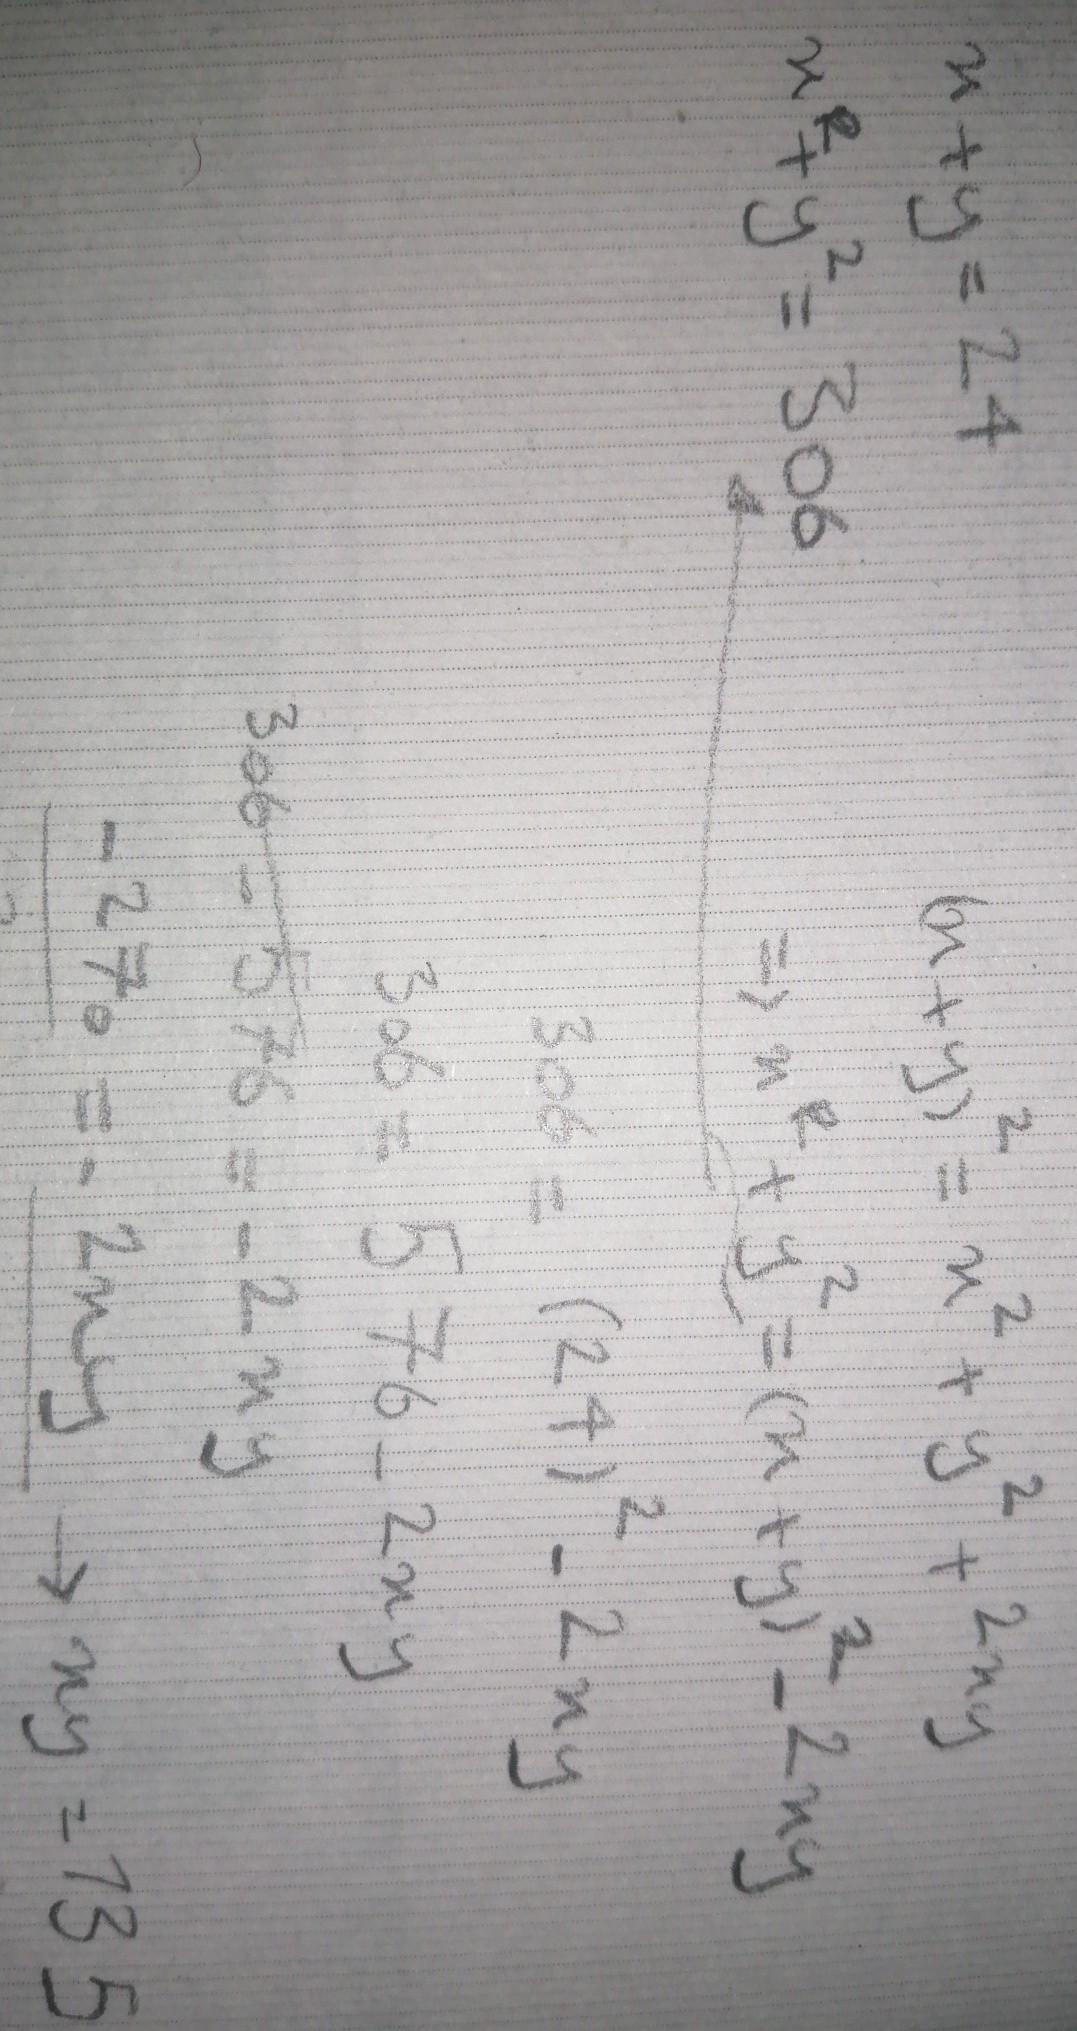 x + y = 24
x² + y² = 306
(x + y)² = x² + y² + 2xy
⇒ x² + y² = (x + y)² - 2xy
306 = (24)² - 2xy
306 = 576 - 2xy
306 - 576 = -2xy
-270 = -2xy → xy = 135